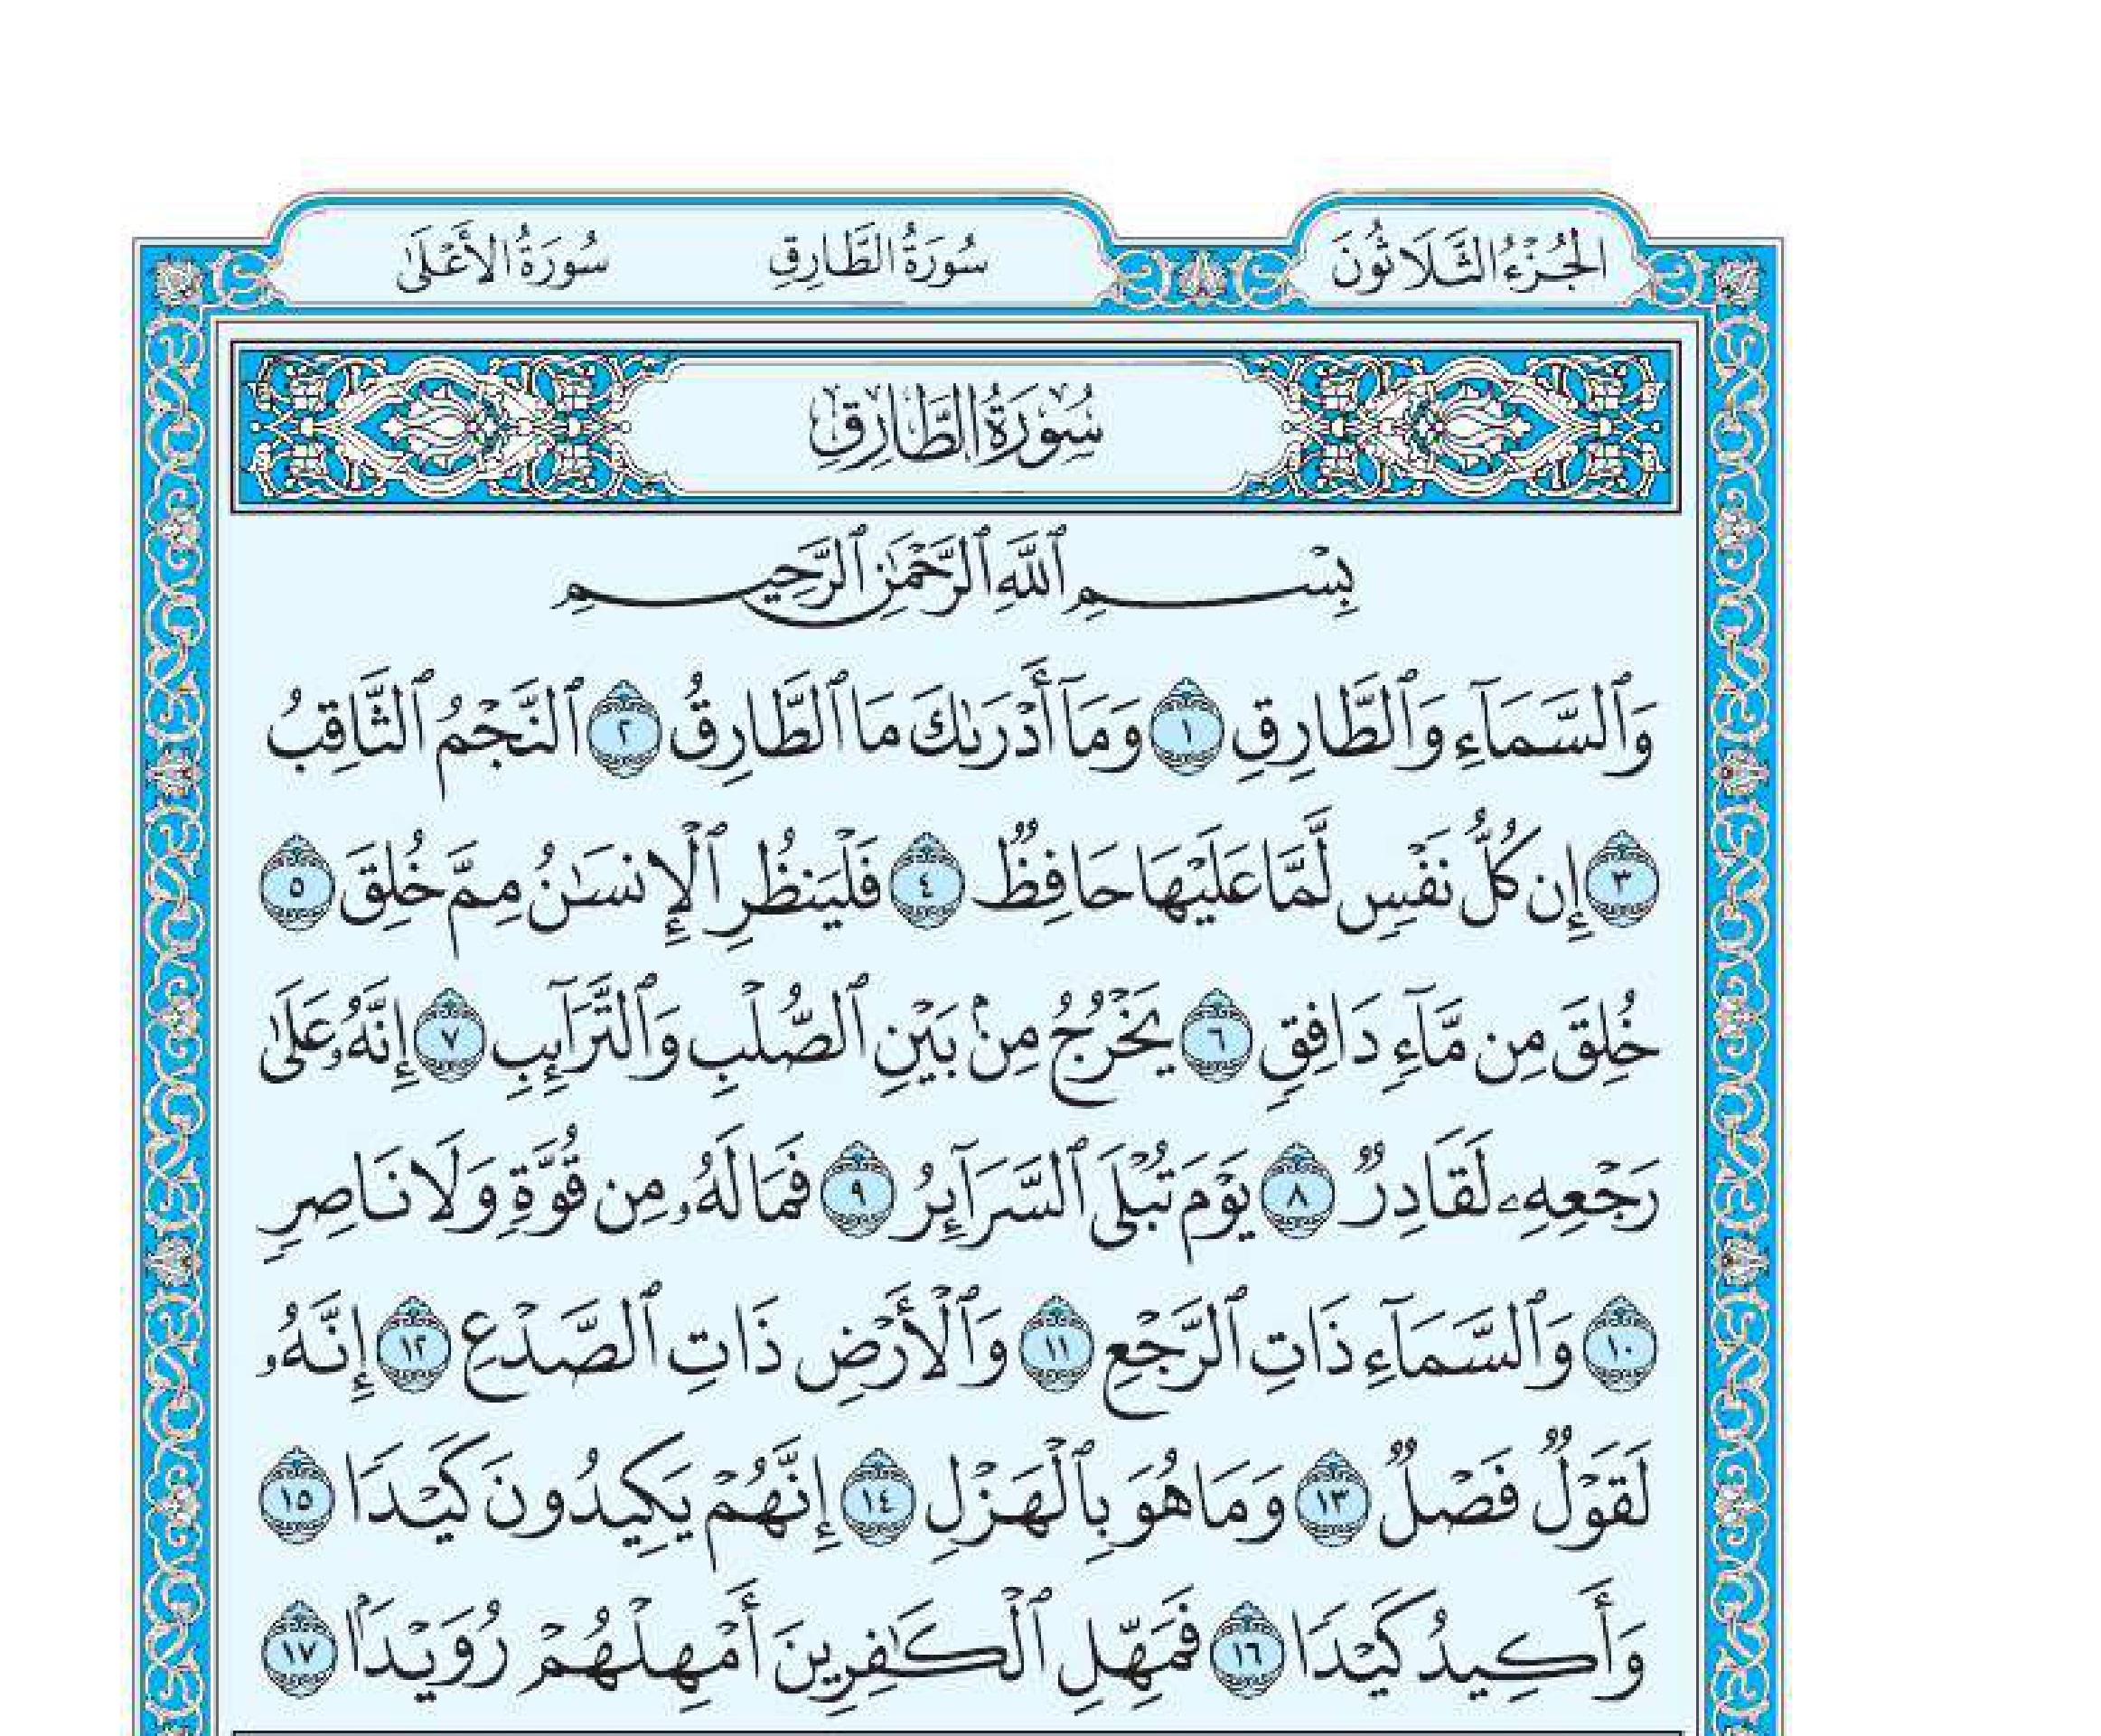 الجُزْءُ الثَّلَاثُونَ سُورَةُ الطَّارِقِ سُورَةُ الأَعْلَىٰ
سُورَةُ الطَّارِقِ
بِسْمِ ٱللَّهِ ٱلرَّحْمَٰنِ ٱلرَّحِيمِ
وَٱلسَّمَآءِ وَٱلطَّارِقِ ١ وَمَآ أَدْرَىٰكَ مَا ٱلطَّارِقُ ٢ ٱلنَّجْمُ ٱلثَّاقِبُ
٣ إِن كُلُّ نَفْسٍ لَّمَّا عَلَيْهَا حَافِظٌ ٤ فَلْيَنظُرِ ٱلْإِنسَٰنُ مِمَّ خُلِقَ ٥
خُلِقَ مِن مَّآءٍ دَافِقٍ ٦ يَخْرُجُ مِنۢ بَيْنِ ٱلصُّلْبِ وَٱلتَّرَآئِبِ ٧ إِنَّهُۥ عَلَىٰ
رَجْعِهِۦ لَقَادِرٌ ٨ يَوْمَ تُبْلَى ٱلسَّرَآئِرُ ٩ فَمَا لَهُۥ مِن قُوَّةٍ وَلَا نَاصِرٍ
١٠ وَٱلسَّمَآءِ ذَاتِ ٱلرَّجْعِ ١١ وَٱلْأَرْضِ ذَاتِ ٱلصَّدْعِ ١٢ إِنَّهُۥ
لَقَوْلٌ فَصْلٌ ١٣ وَمَا هُوَ بِٱلْهَزْلِ ١٤ إِنَّهُمْ يَكِيدُونَ كَيْدًا ١٥
وَأَكِيدُ كَيْدًا ١٦ فَمَهِّلِ ٱلْكَٰفِرِينَ أَمْهِلْهُمْ رُوَيْدًۢا ١٧